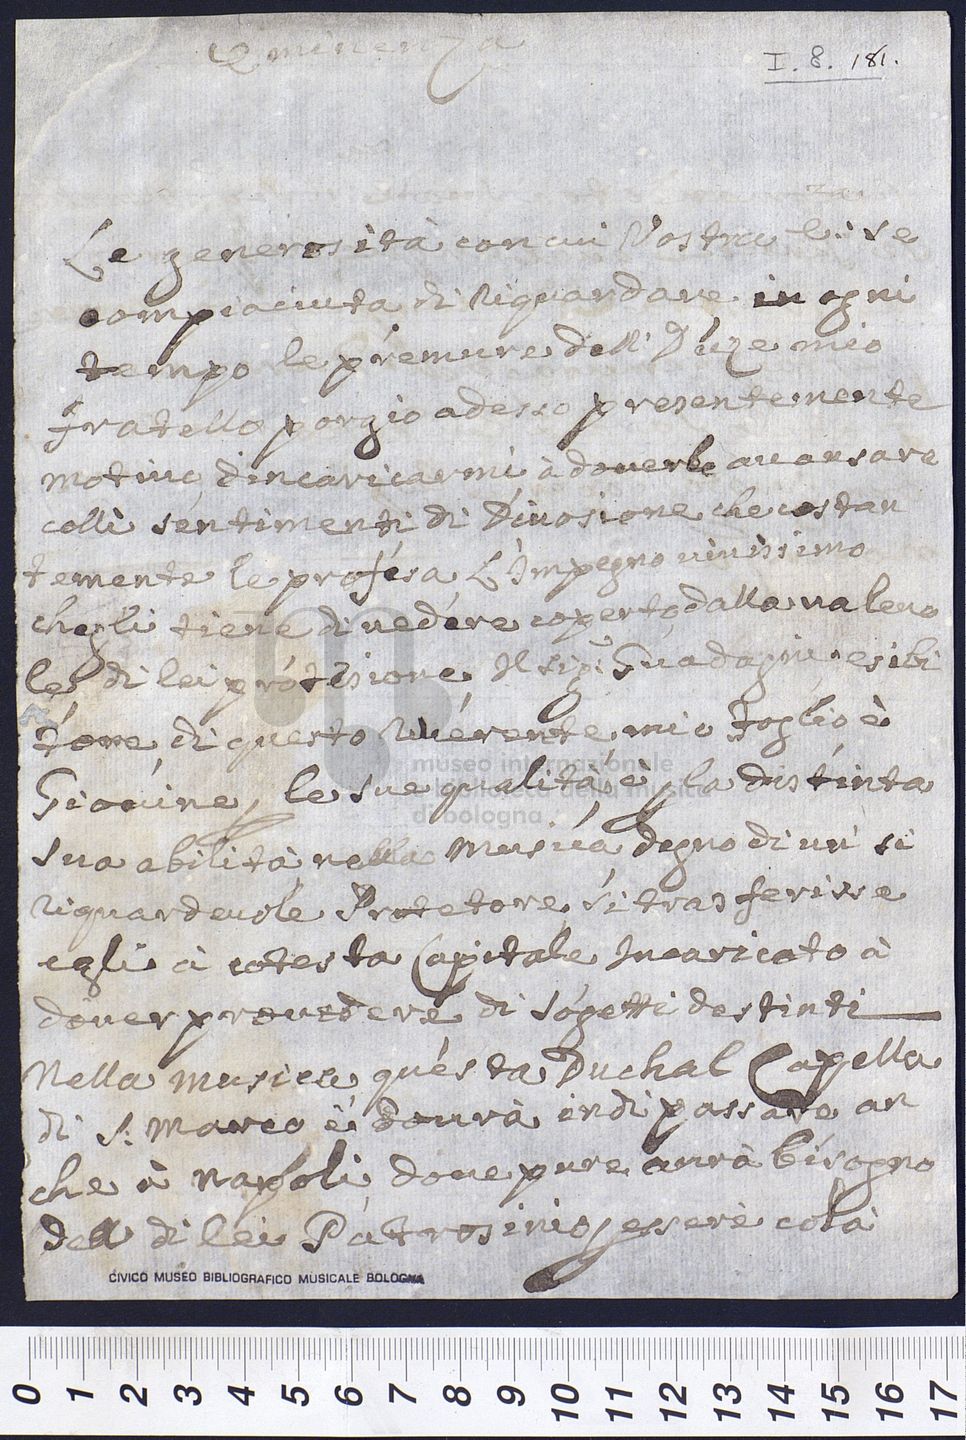 Eminenza
I. 8. 181.
Le generosità con cui Vostra E: si è
compiaciuta di riguardare in ogni
tempo le premure dell' Duze mio
fratello porgio adesso presentemente
motivo d'incaricarmi à doverle avansare
colli sentimenti di Divosione che costan
temente le profesa L'Impegno vivissimo
ch'egli tiene di vedere coperto dalla valevo
le di lei protesione, Il sigr Guadagni esibi
tore di questo riverente mio foglio è
Giovine, le sue qualità, è p la distinta
sua abilità nella Musica degno di un si
riguardevole Protetore, si trasferisse
egli à cotesta Capitale Incaricato à
dover provedere di sogetti destinti
Nella musica questa Duchal Capella
di S: Marco è dovrà indi passare an
che à Napoli dove pure avrà bisogno
dell di lei Patrosinio p essere colà
museo internazionale
e biblioteca della musica
di bologna
CIVICO MUSEO BIBLIOGRAFICO MUSICALE BOLOGNA
0 1 2 3 4 5 6 7 8 9 10 11 12 13 14 15 16 17